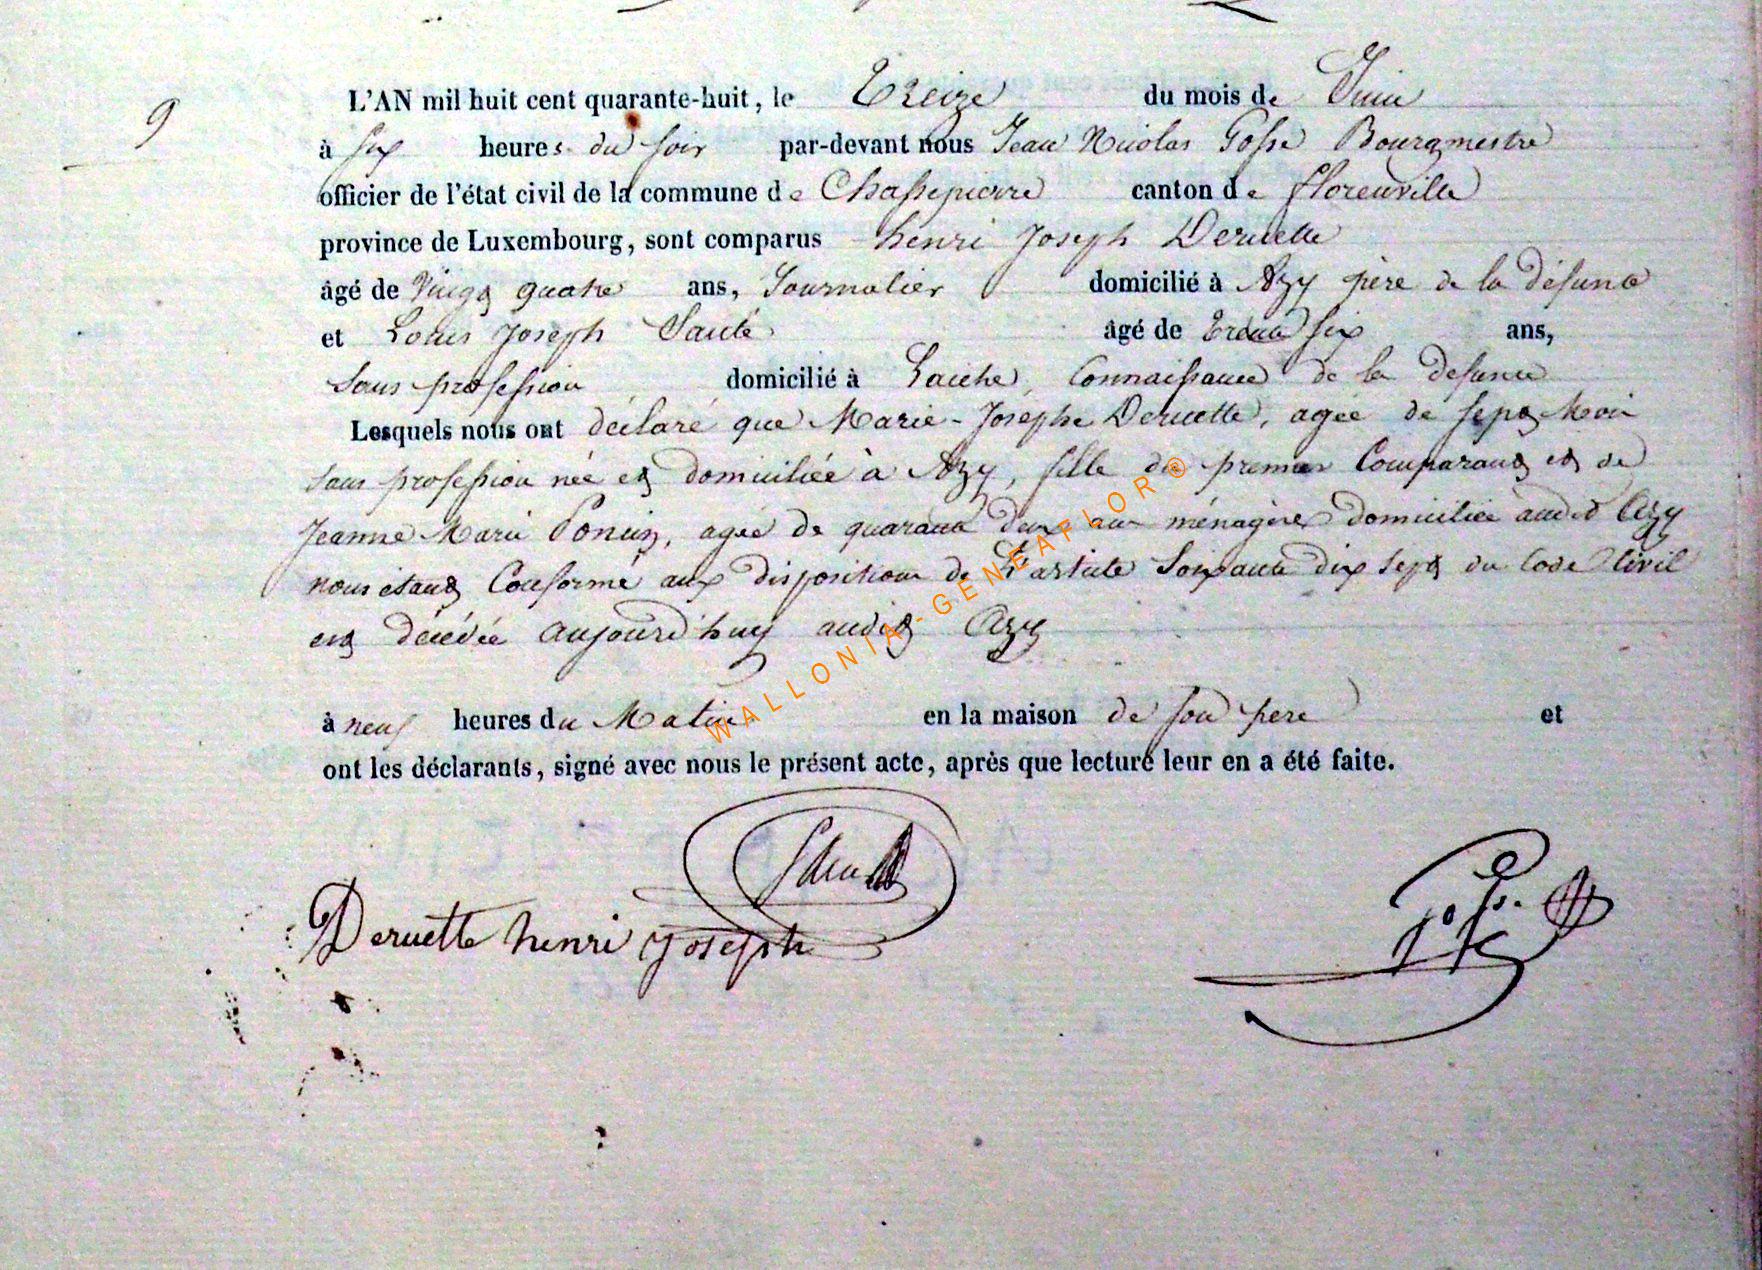 9
L'AN mil huit cent quarante-huit, le Treize du mois de Juin
à six heures du soir par-devant nous Jean Nicolas Gosse Bourgmestre
officier de l'état civil de la commune de Chassepierre canton de florenville
province de Luxembourg, sont comparus henri Joseph Deruette
âgé de Vingt quatre ans, Journalier domicilié à Azy père de la défunte
et Louis Joseph Sauté âgé de trente six ans,
sans profession domicilié à Laiche, Connaissance de la defunte
Lesquels nous ont déclaré que Marie-Joséphe Deruette, agée de sept Mois
sans profession née et domiciliée à Azy, fille du premier Comparant et de
Jeanne Marie Poncin, agée de quarante deux ans ménagère domiciliée audit Azy
nous étant Conformé aux dispositions de L'article Soixante dix sept du Code Civil
est décédée aujourd'huy audit Azy
à neuf heures du Matin en la maison de son père et
ont les déclarants, signé avec nous le présent acte, après que lecture leur en a été faite.
Deruette henri Joseph
WALLONIA-GENEAFLOR©